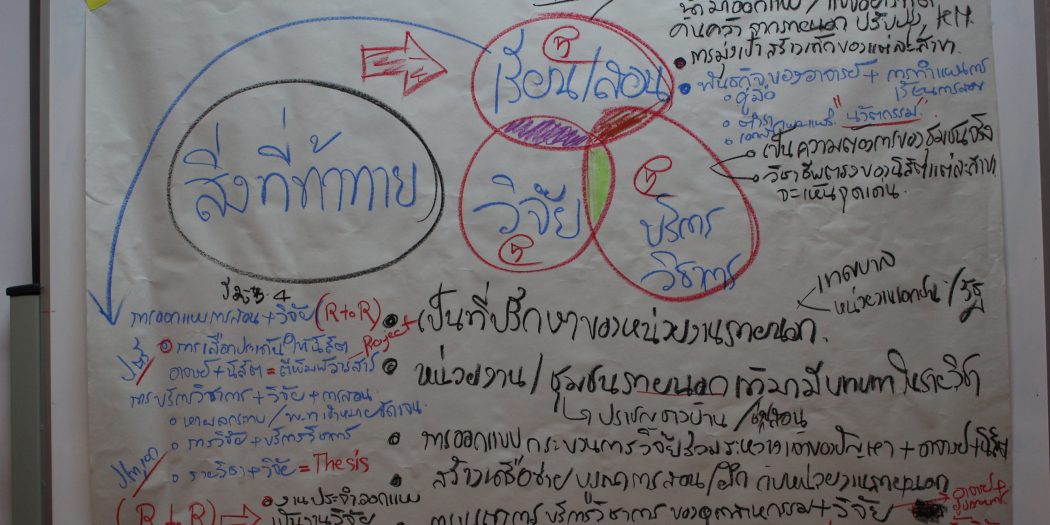 เรียน/สอน
สิ่งที่ท้าทาย
วิจัย
บริการ
วิชาการ
ค้นคว้าจากภายนอก ปรับปรุง, KM.
การมุ่งเป้า สร้างเด็กของแต่ละสาขา.
พันธกิจของอาจารย์ + การทำแผนการ
เรียนการสอน
คู่มือ
ตำรา
"นวัตกรรม"
เป็นความต้องการของชุมชนจริง
วิชาชีพตรงของนิสิตแต่ละสาขา
จะเห็นจุดเด่น.
เทศบาล
หน่วยงานเอกชน/รัฐ
การออกแบบการสอน+วิจัย (R to R)
Project
อาจารย์+นิสิต = ตีพิมพ์วารสาร
การบริการวิชาการ+วิจัย+การสอน
การวิจัย+บริการวิชาการ
รายวิชา+วิจัย = Thesis
(R to R)
งานประจำออกแบบ
เป็นงานวิจัย
เป็นที่ปรึกษาของหน่วยงานภายนอก.
หน่วยงาน/ชุมชนภายนอกเข้ามามีบทบาทในรายวิชา
ปราชญ์ชาวบ้าน/ผู้สอน
การออกแบบกระบวนการวิจัยร่วมระหว่างเจ้าของปัญหา+อาจารย์+นิสิต
สร้างเครือข่าย บูรณาการสอน/วิจัย กับหน่วยงานภายนอก
การบริการวิชาการของอุตสาหกรรม+วิจัย
อาจารย์+